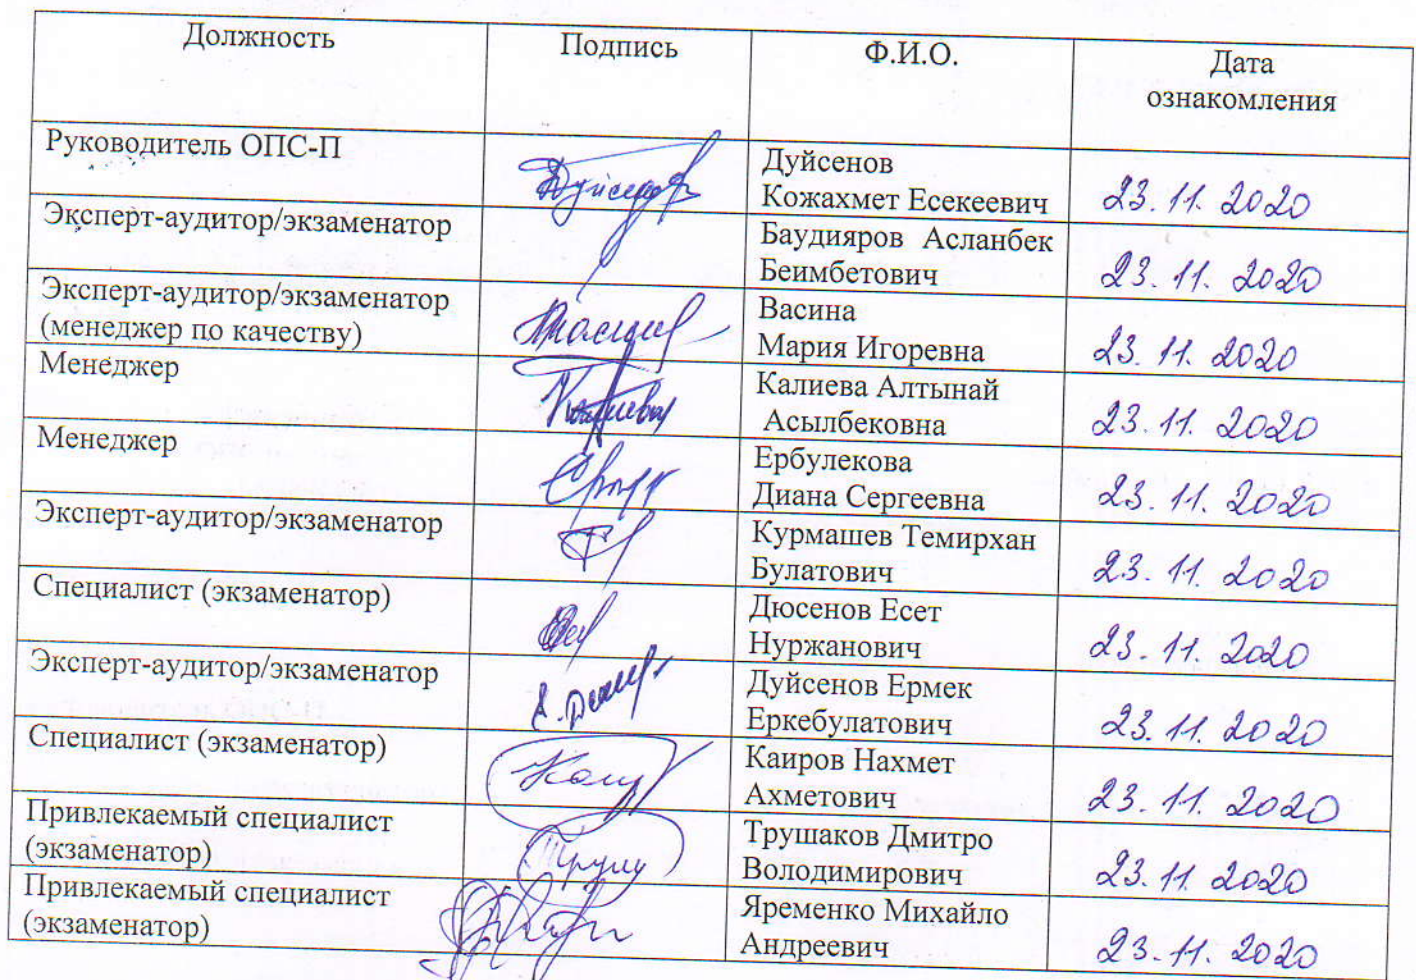 Должность Подпись Ф.И.О. Дата
ознакомления
Руководитель ОПС-П Дуйсенов
Кожахмет Есекеевич 23.11.2020
Эксперт-аудитор/экзаменатор Баудияров Асланбек
Беимбетович 23.11.2020
Эксперт-аудитор/экзаменатор Васина
(менеджер по качеству) Мария Игоревна 23.11.2020
Менеджер Калиева Алтынай
Асылбековна 23.11.2020
Менеджер Ербулекова
Диана Сергеевна 23.11.2020
Эксперт-аудитор/экзаменатор Курмашев Темирхан
Булатович 23.11.2020
Специалист (экзаменатор) Дюсенов Есет
Нуржанович 23.11.2020
Эксперт-аудитор/экзаменатор Дуйсенов Ермек
Еркебулатович 23.11.2020
Специалист (экзаменатор) Каиров Нахмет
Ахметович 23.11.2020
Привлекаемый специалист Трушаков Дмитро
(экзаменатор) Володимирович 23.11.2020
Привлекаемый специалист Яременко Михайло
(экзаменатор) Андреевич 23.11.2020